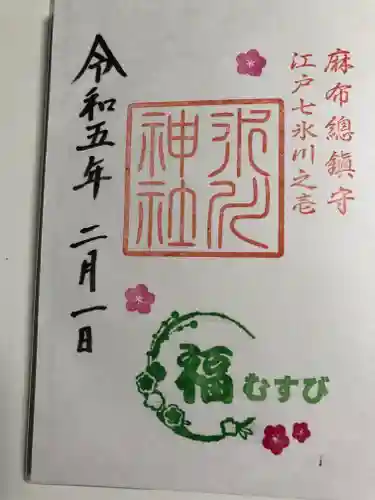 麻布總鎮守
江戸七氷川之壱
氷川
神社
令和五年 二月一日
福むすび